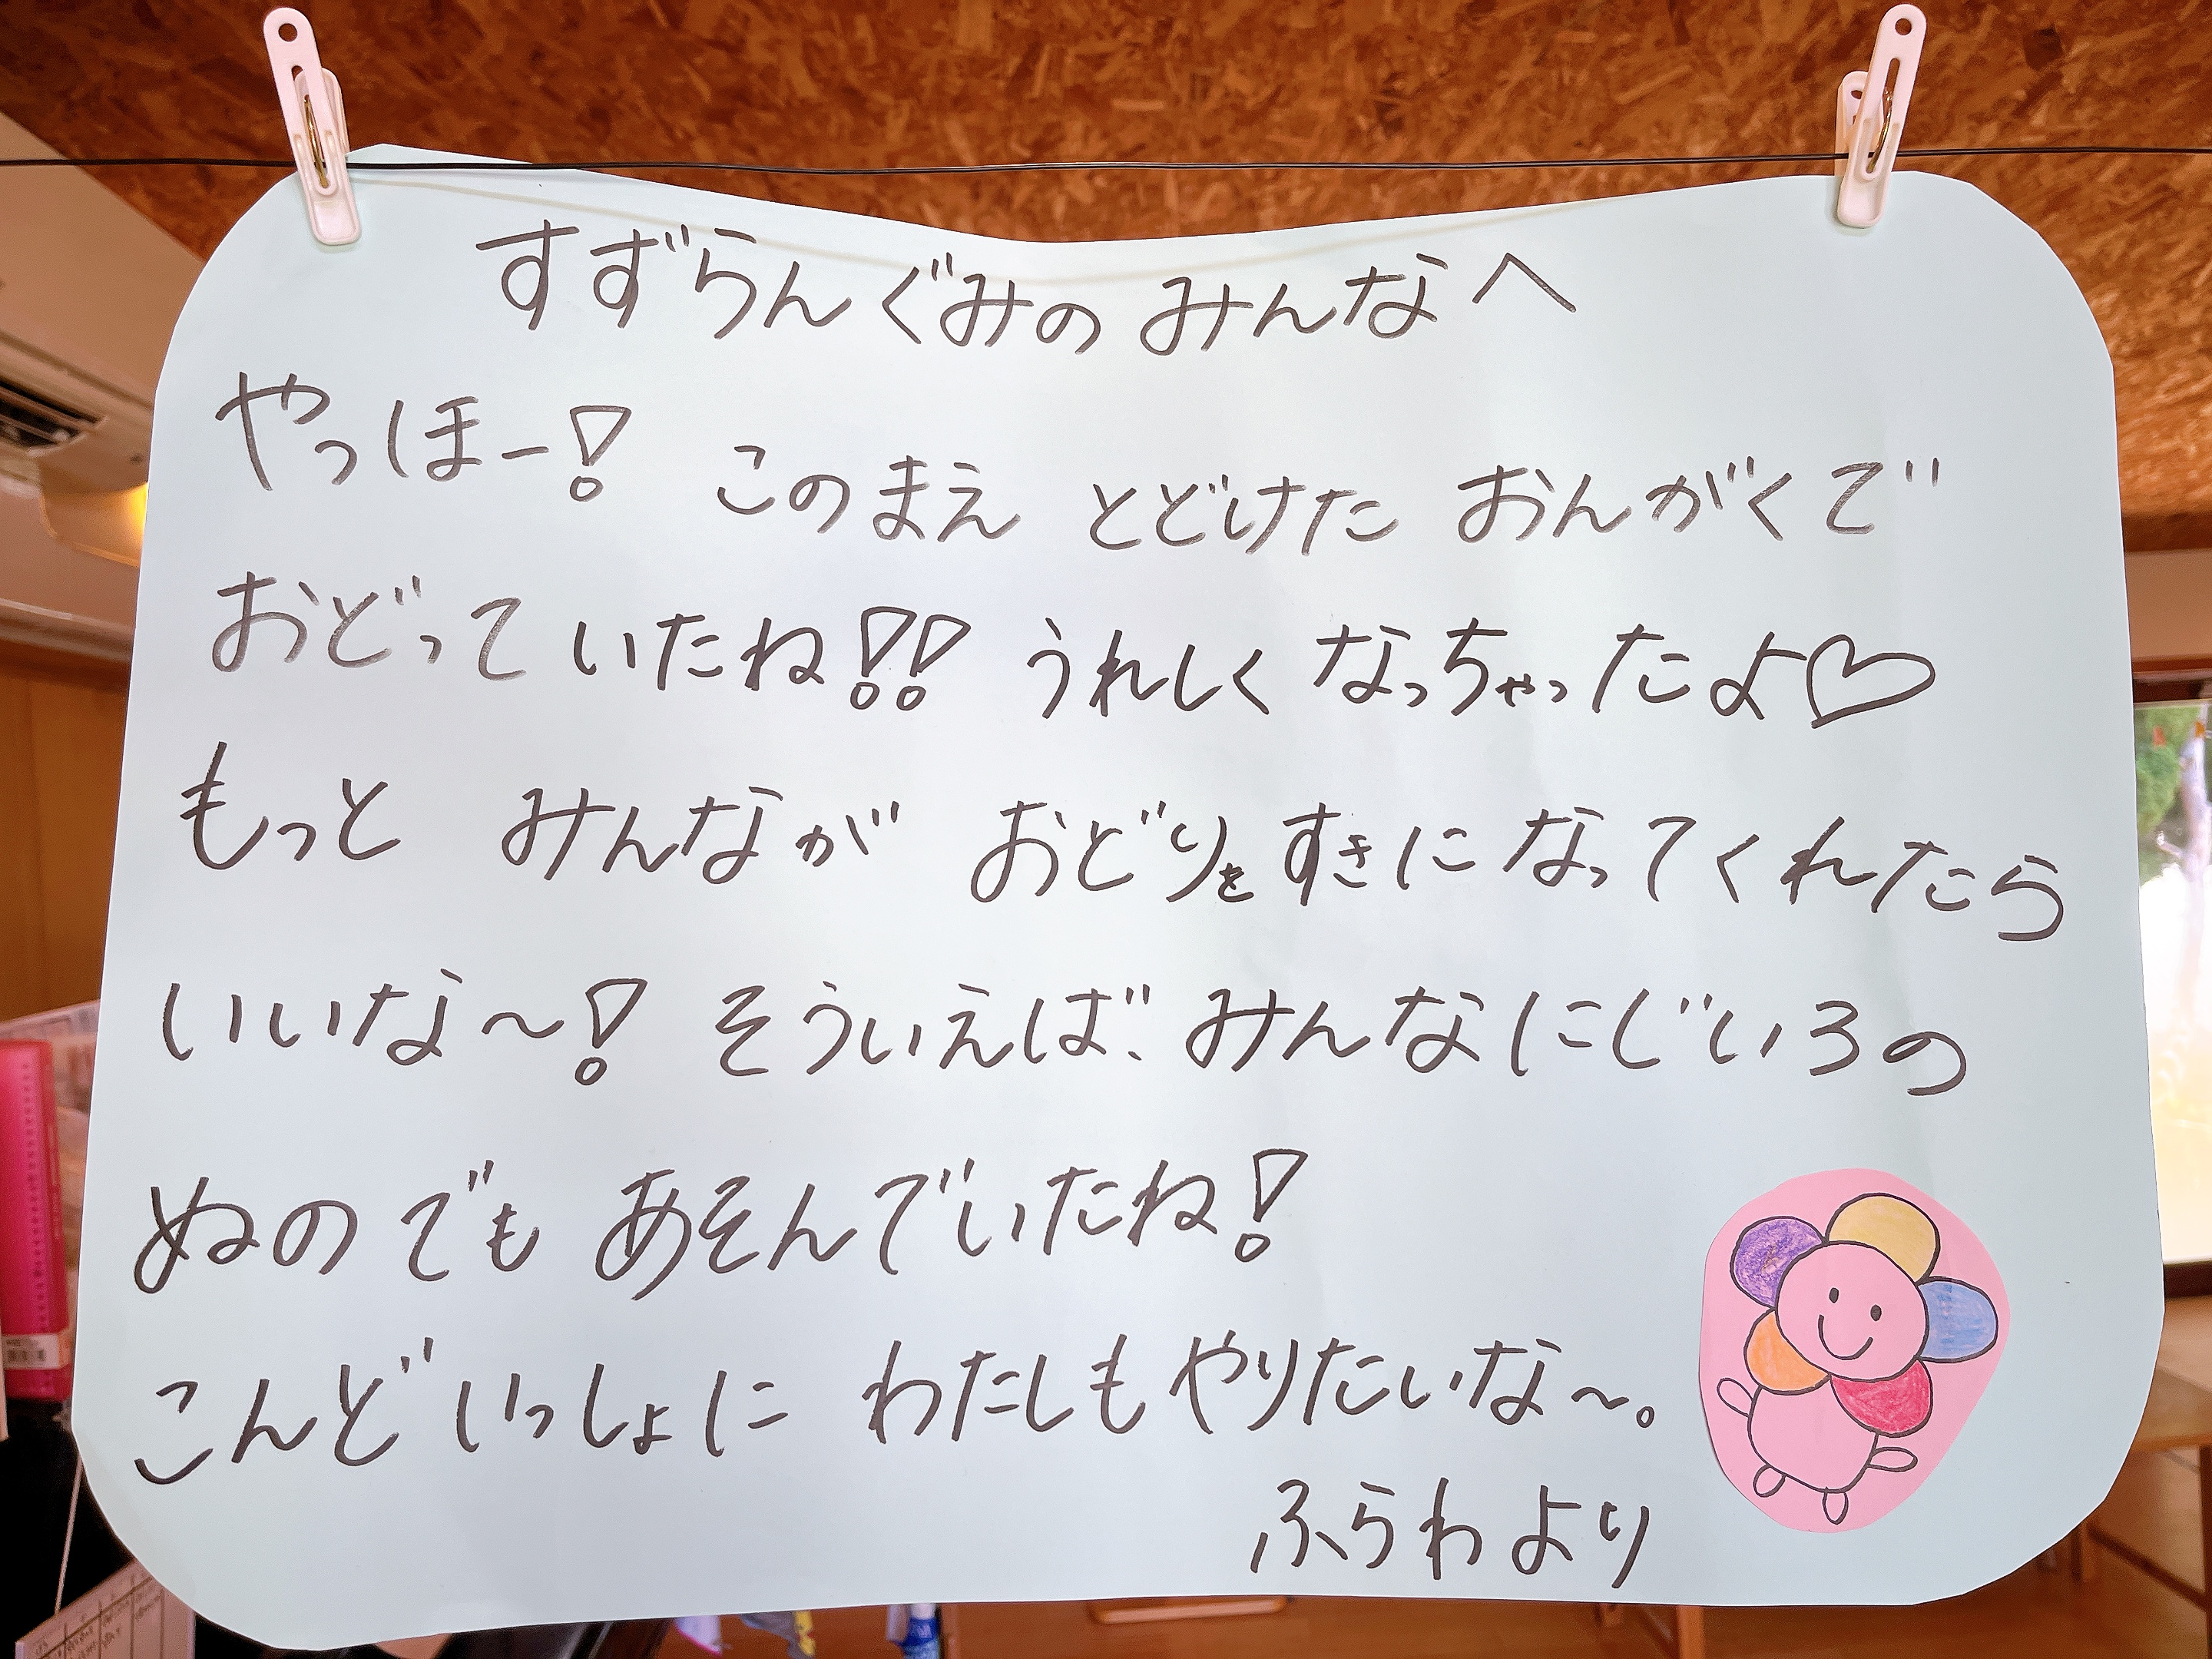 すずらんぐみの みんなへ
やっほー! このまえ とどけた おんがくで
おどって いたね!! うれしく なっちゃったよ♡
もっと みんなが おどりを すきに なってくれたら
いいな～! そういえば、みんな にじいろの
ぬのでも あそんでいたね!
こんど いっしょに わたしも やりたいな～。
ふらわより